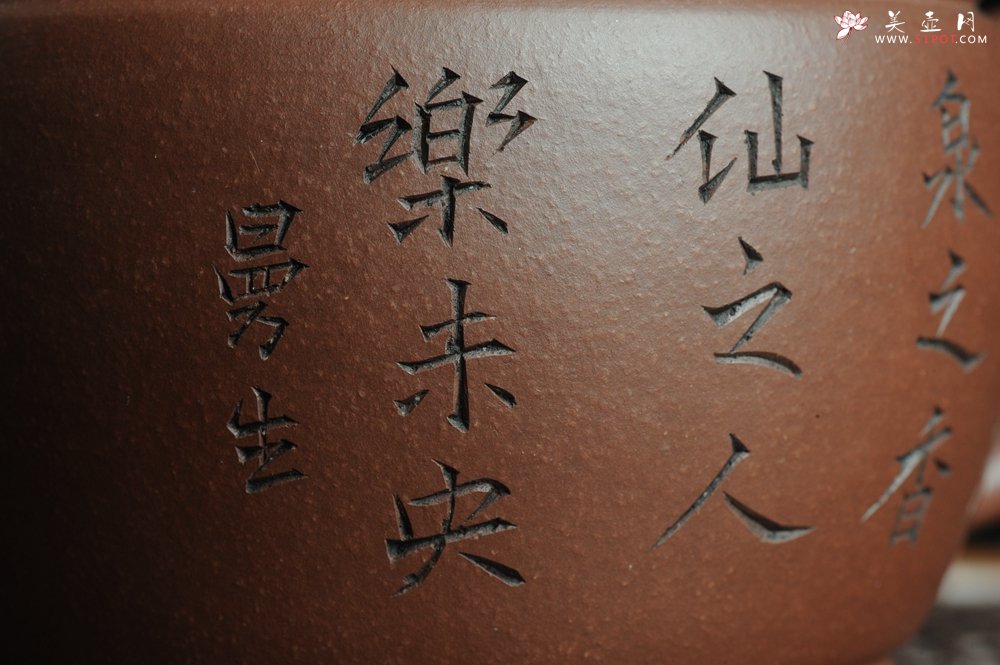 泉之香
仙之人
樂未央
曼生
美壶网
WWW.51POT.COM